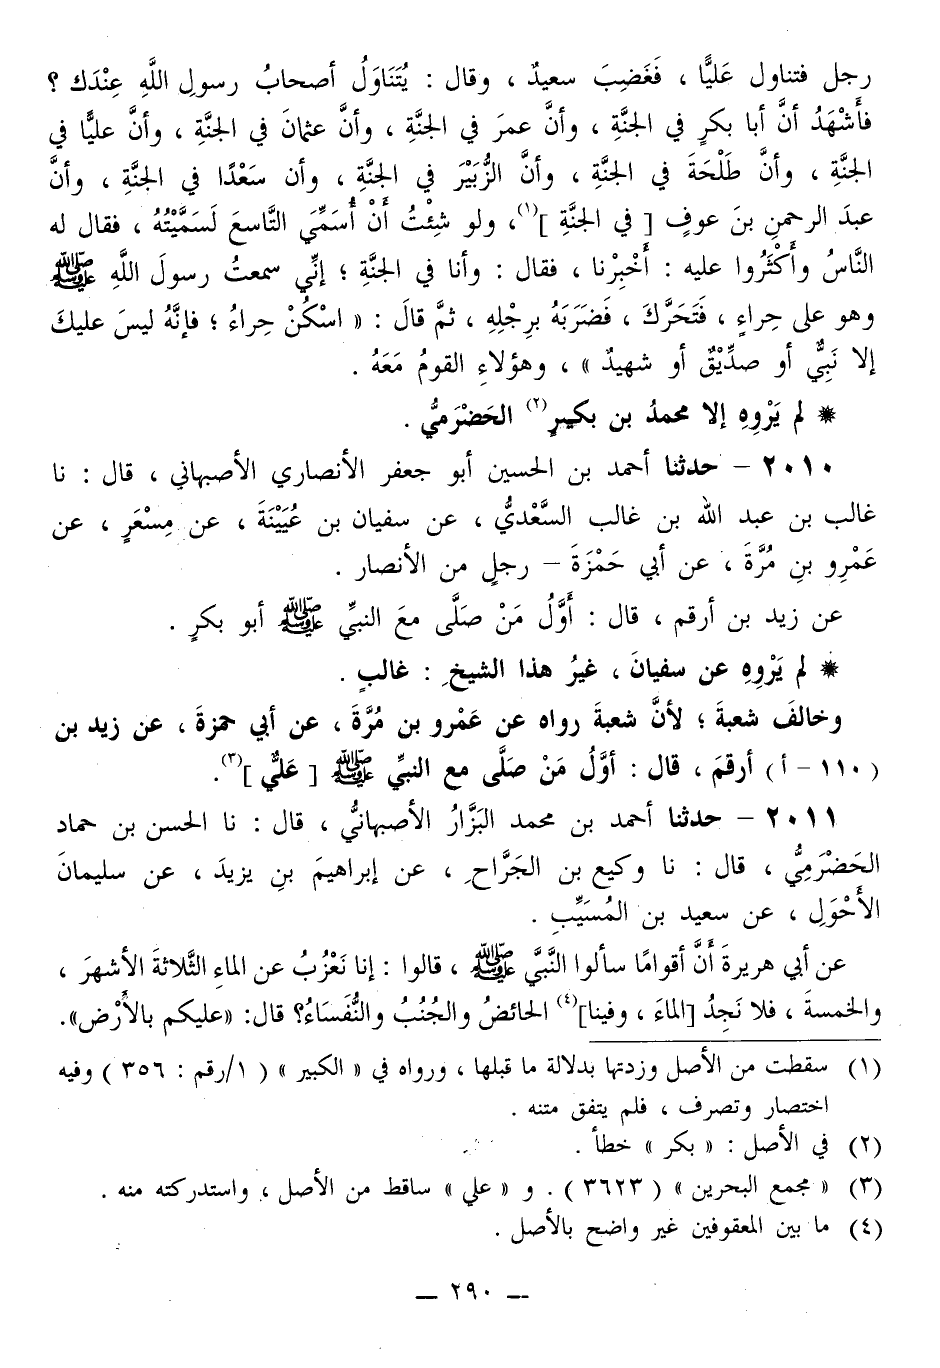 رجل فتناول عَليًّا ، فَغَضِبَ سعيدٌ ، وقال : يُتَنَاوَلُ أصحابُ رسولِ اللَّهِ عِنْدَك ؟
فأَشْهَدُ أنَّ أبا بكرٍ في الجنَّةِ ، وأنَّ عمرَ في الجنَّةِ ، وأنَّ عثمانَ في الجنَّةِ ، وأنَّ عليًّا في
الجنَّةِ ، وأنَّ طَلْحَةَ في الجنَّةِ ، وأنَّ الزُّبَيْرَ في الجنَّةِ ، وأن سَعْدًا في الجنَّةِ ، وأنَّ
عبدَ الرحمنِ بنَ عوفٍ [ في الجنَّةِ ](١)، ولو شِئْتُ أَنْ أُسَمِّيَ التَّاسعَ لَسَمَّيْتُهُ ، فقال له
النَّاسُ وأَكْثَرُوا عليه : أَخْبِرْنا ، فقال : وأنا في الجنَّةِ ؛ إنِّي سمعتُ رسولَ اللَّهِ ﷺ
وهو على حِراءٍ ، فَتَحَرَّكَ ، فَضَرَبَهُ برِجْلِهِ ، ثمَّ قالَ : « اسْكُنْ حِراءُ ؛ فإنَّهُ ليسَ عليكَ
إلا نَبِيٌّ أو صدِّيْقٌ أو شهيدٌ » ، وهؤلاءِ القومُ مَعَهُ .
* لم يَرْوِهِ إلا محمدُ بن بكيرٍ(٢) الحَضْرَميُّ .
٢٠١٠ – حدثنا أحمد بن الحسين أبو جعفر الأنصاري الأصبهاني ، قال : نا
غالب بن عبد الله بن غالب السَّعْديُّ ، عن سفيان بن عُيَيْنَةَ ، عن مِسْعَرٍ ، عن
عَمْرِو بنِ مُرَّةَ ، عن أبي حَمْزَةَ – رجلٍ من الأنصار .
عن زيد بن أرقم ، قال : أَوَّلُ مَنْ صَلَّى معَ النبيِّ ﷺ أبو بكرٍ .
* لم يَرْوِهِ عن سفيانَ ، غيرُ هذا الشيخِ : غالبٍ .
وخالفَ شعبةَ ؛ لأنَّ شعبةَ رواه عن عَمْرو بن مُرَّةَ ، عن أبي حمزةَ ، عن زيد بن
( ١١٠ – أ ) أرقمَ ، قال : أوَّلُ مَنْ صَلَّى مع النبيِّ ﷺ [ عَليٌّ ](٣).
٢٠١١ – حدثنا أحمد بن محمد البَزَّارُ الأصبهانيُّ ، قال : نا الحسن بن حماد
الحَضْرَمِيُّ ، قال : نا وكيع بن الجَرَّاحِ ، عن إبراهيمَ بنِ يزيدَ ، عن سليمانَ
الأَحْوَلِ ، عن سعيد بن المُسَيِّبِ .
عن أبي هريرةَ أَنَّ أقوامًا سألوا النَّبيَّ ﷺ ، قالوا : إنا نَعْزُبُ عن الماءِ الثَّلاثةَ الأشهرَ ،
والخمسةَ ، فلا نَجِدُ [الماءَ ، وفينا](٤) الحائضُ والجُنُبُ والنُّفَسَاءُ؟ قال: «عليكم بالأَرْض».
(١) سقطت من الأصل وزدتها بدلالة ما قبلها ، ورواه في « الكبير » ( ١/رقم : ٣٥٦ ) وفيه
اختصار وتصرف ، فلم يتفق متنه .
(٢) في الأصل : « بكر » خطأ .
(٣) « مجمع البحرين » ( ٣٦٢٣ ) . و « علي » ساقط من الأصل ، واستدركته منه .
(٤) ما بين المعقوفين غير واضح بالأصل .
— ٢٩٠ —